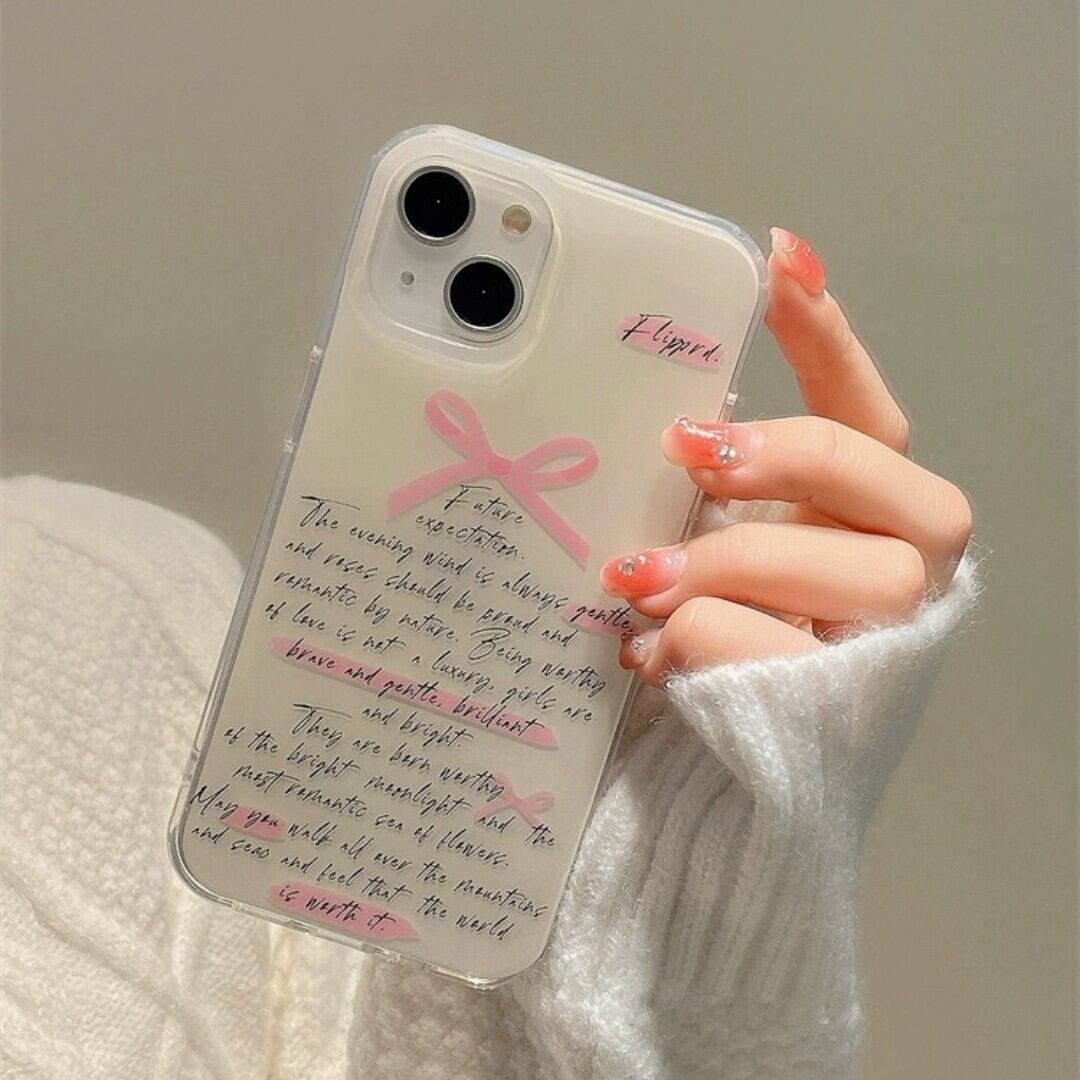 Flipprd.
Future
expectation.
The evening wind is always gentle,
and roses should be proud and
romantic by nature. Being worthy
of love is not a luxury, girls are
brave and gentle, brilliant
and bright.
They are born worthy
of the bright moonlight and the
most romantic sea of flowers.
May you walk all over the mountains
and seas and feel that the world
is worth it.